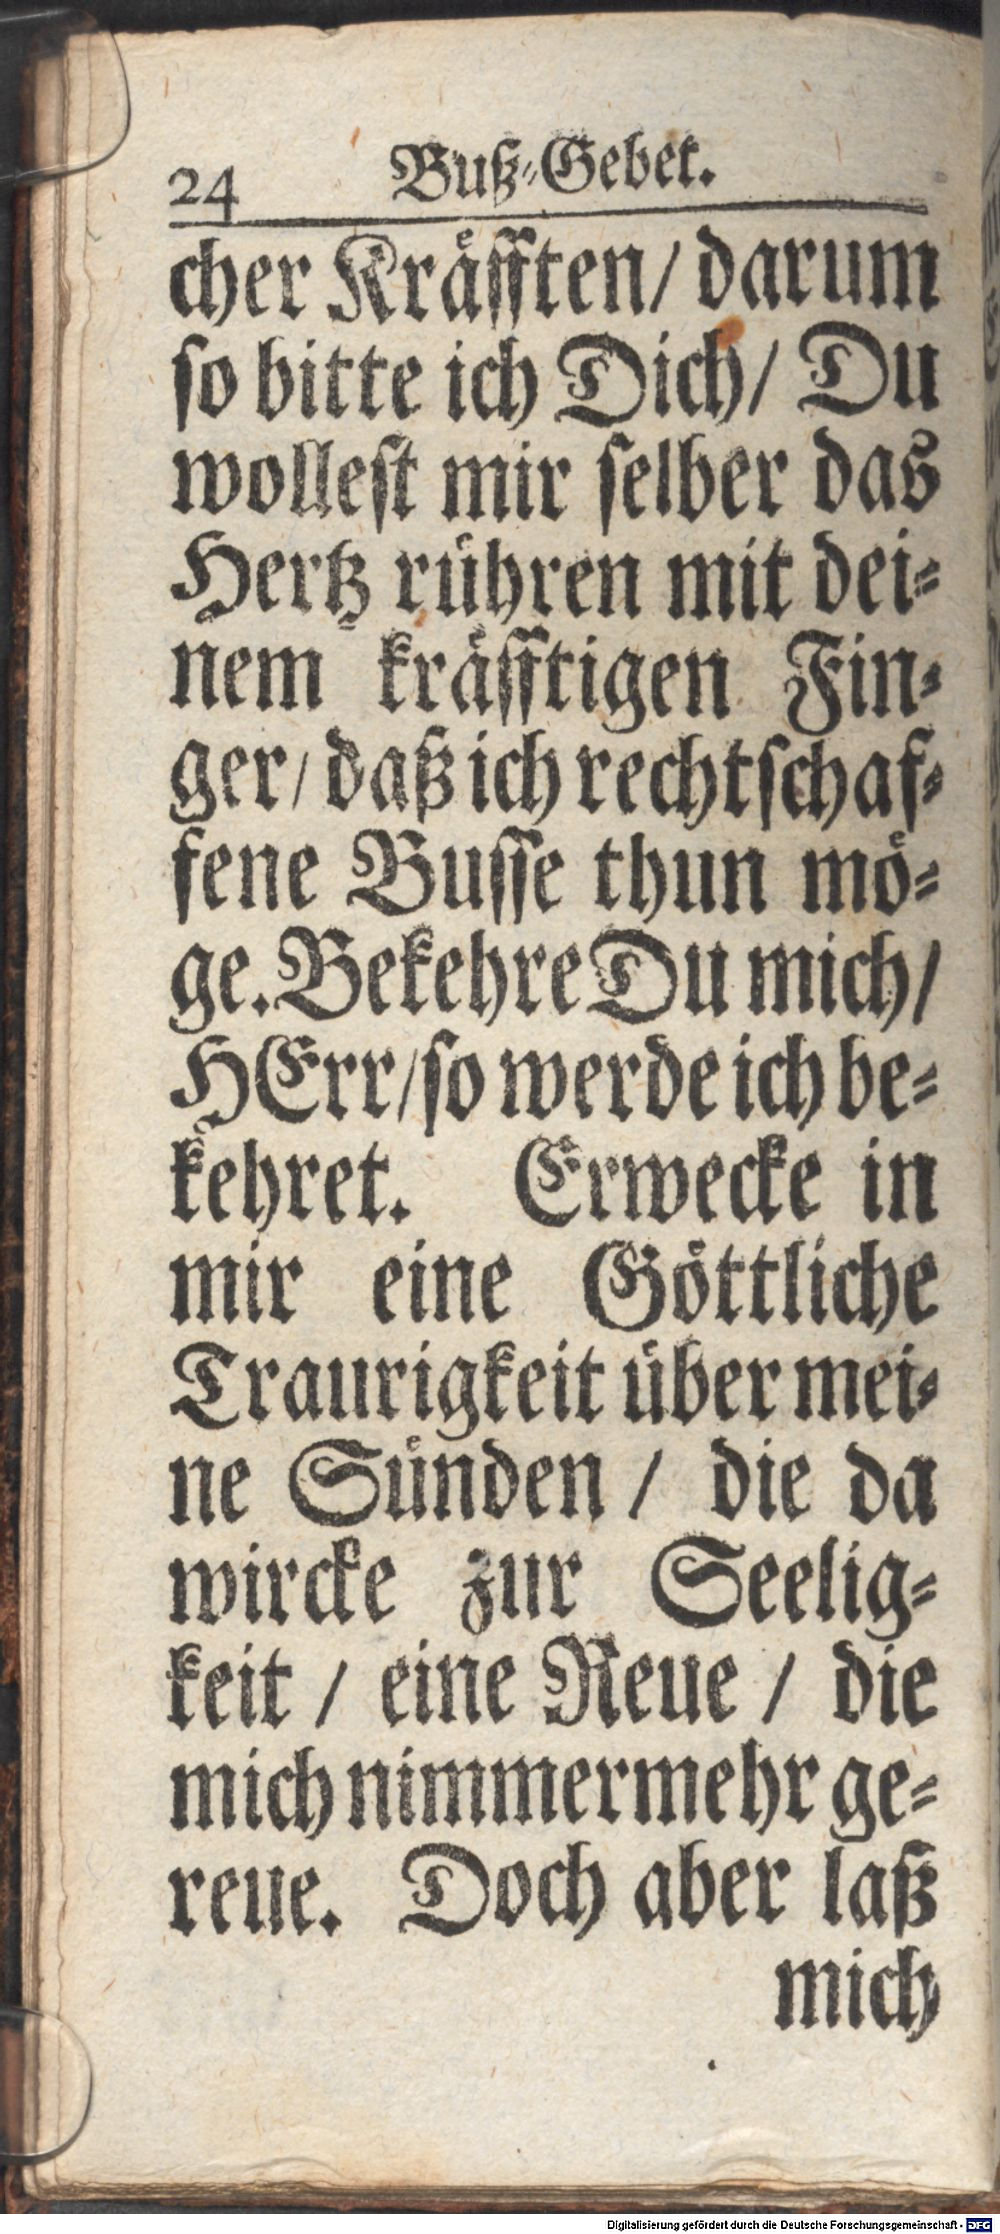 24 Buß-Gebet.
cher Kräfften/ darum
so bitte ich Dich/ Du
wollest mir selber das
Hertz rühren mit dei-
nem kräfftigen Fin-
ger/ daß ich rechtschaf-
fene Busse thun mö-
ge. Bekehre Du mich/
HErr/ so werde ich be-
kehret. Erwecke in
mir eine Göttliche
Traurigkeit über mei-
ne Sünden / die da
wircke zur Seelig-
keit / eine Reue / die
mich nimmermehr ge-
reue. Doch aber laß
mich
Digitalisierung gefördert durch die Deutsche Forschungsgemeinschaft - DFG